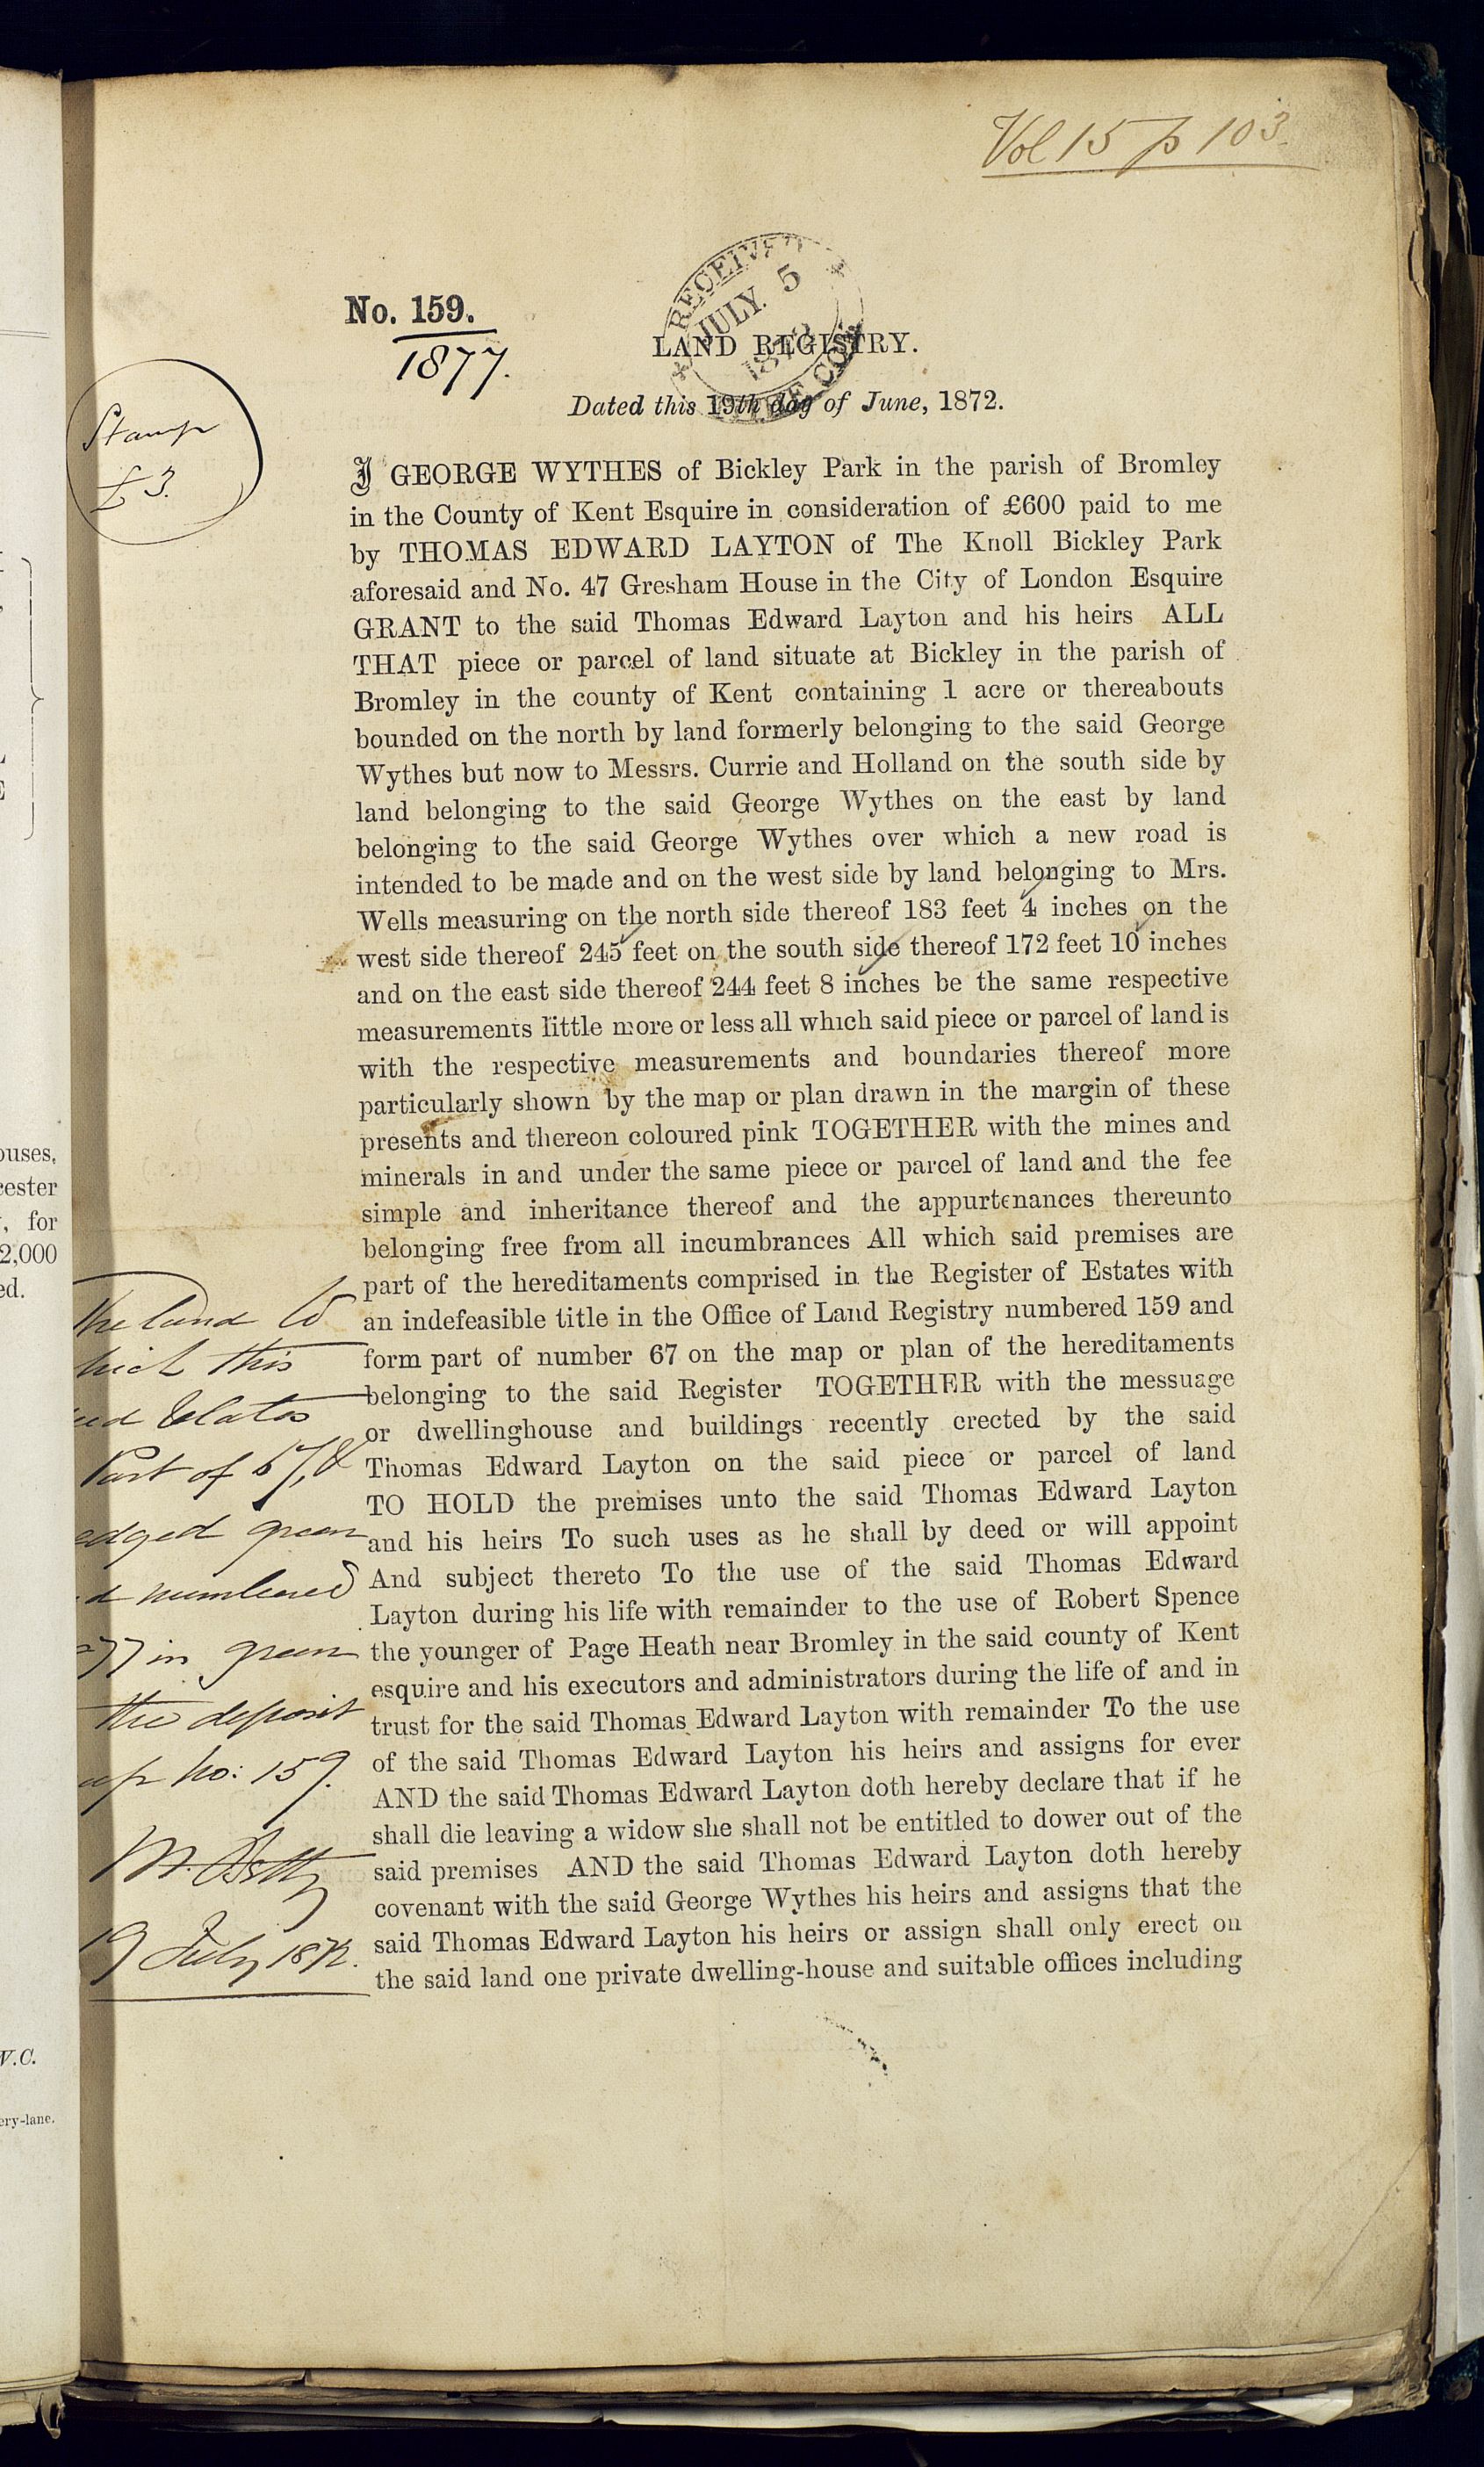 Vol 15 p 103
No. 159.
1877.
RECEIVED
JULY. 5
LAND REGISTRY.
Dated this 19th day of June, 1872.
Stamp
£3.
I GEORGE WYTHES of Bickley Park in the parish of Bromley
in the County of Kent Esquire in consideration of £600 paid to me
by THOMAS EDWARD LAYTON of The Knoll Bickley Park
aforesaid and No. 47 Gresham House in the City of London Esquire
GRANT to the said Thomas Edward Layton and his heirs ALL
THAT piece or parcel of land situate at Bickley in the parish of
Bromley in the county of Kent containing 1 acre or thereabouts
bounded on the north by land formerly belonging to the said George
Wythes but now to Messrs. Currie and Holland on the south side by
land belonging to the said George Wythes on the east by land
belonging to the said George Wythes over which a new road is
intended to be made and on the west side by land belonging to Mrs.
Wells measuring on the north side thereof 183 feet 4 inches on the
west side thereof 245 feet on the south side thereof 172 feet 10 inches
and on the east side thereof 244 feet 8 inches be the same respective
measurements little more or less all which said piece or parcel of land is
with the respective measurements and boundaries thereof more
particularly shown by the map or plan drawn in the margin of these
presents and thereon coloured pink TOGETHER with the mines and
minerals in and under the same piece or parcel of land and the fee
simple and inheritance thereof and the appurtenances thereunto
belonging free from all incumbrances All which said premises are
part of the hereditaments comprised in the Register of Estates with
an indefeasible title in the Office of Land Registry numbered 159 and
form part of number 67 on the map or plan of the hereditaments
belonging to the said Register TOGETHER with the messuage
or dwellinghouse and buildings recently erected by the said
Thomas Edward Layton on the said piece or parcel of land
TO HOLD the premises unto the said Thomas Edward Layton
and his heirs To such uses as he shall by deed or will appoint
And subject thereto To the use of the said Thomas Edward
Layton during his life with remainder to the use of Robert Spence
the younger of Page Heath near Bromley in the said county of Kent
esquire and his executors and administrators during the life of and in
trust for the said Thomas Edward Layton with remainder To the use
of the said Thomas Edward Layton his heirs and assigns for ever
AND the said Thomas Edward Layton doth hereby declare that if he
shall die leaving a widow she shall not be entitled to dower out of the
said premises AND the said Thomas Edward Layton doth hereby
covenant with the said George Wythes his heirs and assigns that the
said Thomas Edward Layton his heirs or assign shall only erect on
the said land one private dwelling-house and suitable offices including
The land to
hich this
ed relates
Part of 67, &
edged green
d numbered
77 in green
the deposit
ap No: 159.
19 July 1872.
ouses,
cester
, for
2,000
ed.
V.C.
ery-lane.